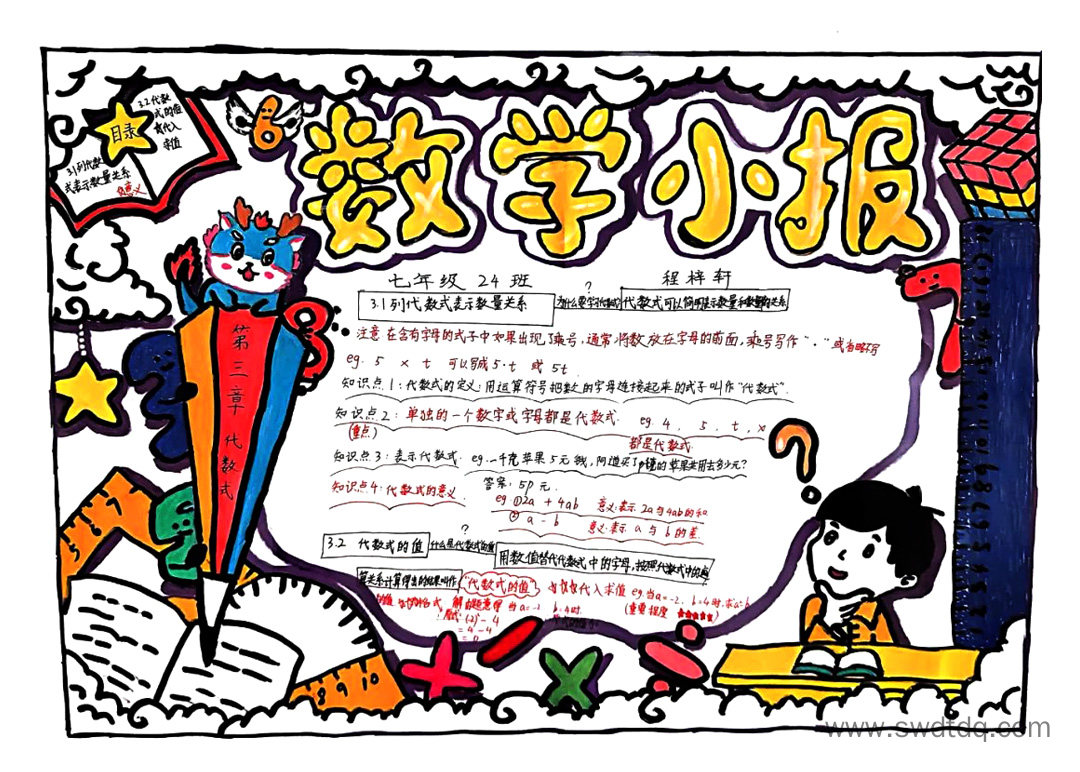 数学小报
目录
3.2代数
式的值
代入
求值
3.1列代数
式表示数量关系
意义
第三章 代数式
七年级 24 班
程梓轩
3.1列代数式表示数量关系
?
为什么要学代数式
代数式可以简明表示数量和数量关系
注意 在含有字母的式子中如果出现了乘号,通常将数放在字母的前面,乘号写作“·”或省略不写
eg. 5 × t 可以写成 5·t 或 5t
知识点1:代数式的定义:用运算符号把数的字母连接起来的式子叫作“代数式”.
知识点2:单独的一个数字或字母都是代数式. eg. 4 . 5 . t . x
(重点)
都是代数式.
知识点3:表示代数式. eg.一千克苹果5元钱,问道买了p
的苹果共用去多少元?
答案:5p 元.
知识点4:代数式的意义.
eg ①2a + 4ab 意义:表示 2a 与 4ab 的和
② a - b 意义:表示 a 与 b 的差
3.2 代数式的值
?
什么是代数式的值
用数值替代代数式中的字母,按照代数式中的运
算关系计算得出的结果叫作
“代数式的值”
代入求值 eg.当a=-2, b=4时,求a²-b
(重要程度 ★★★★★)
解 当a=-2 b=4时.
(2)²- 4
= 4-4
= 0
6 7
8 9 10
?
www.swdtdq.com